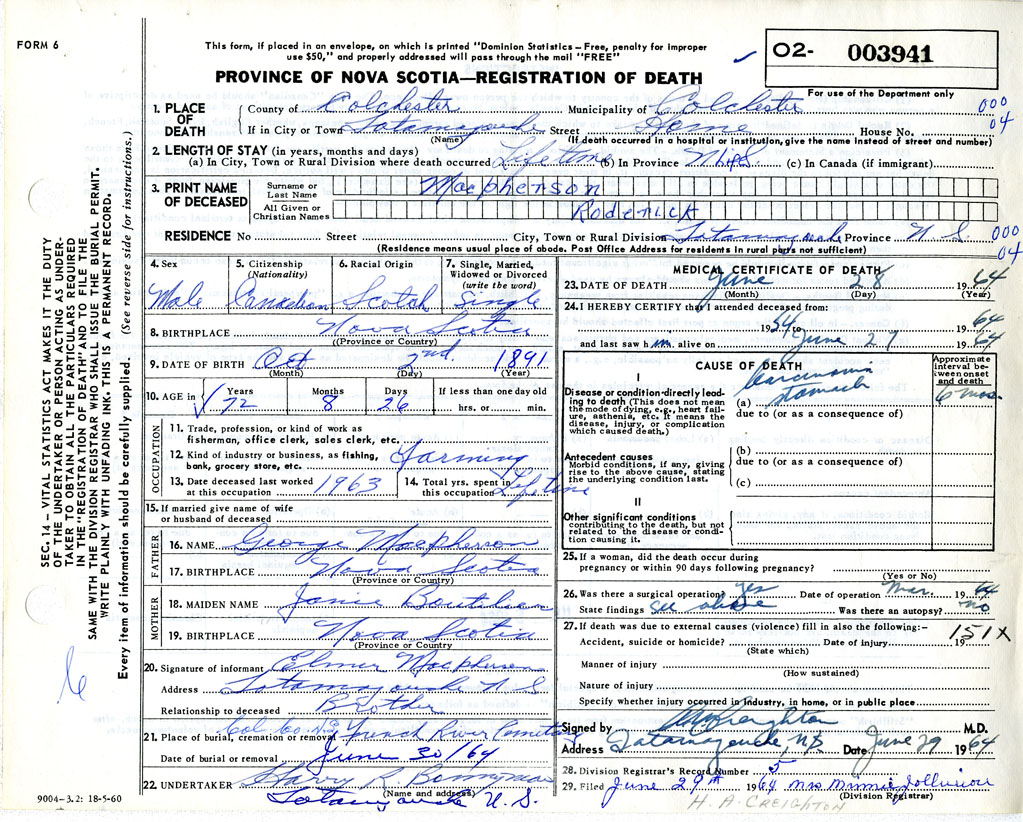 FORM 6
This form, if placed in an envelope, on which is printed "Dominion Statistics – Free, penalty for improper
use $50," and properly addressed will pass through the mail "FREE"
02- 003941
For use of the Department only
PROVINCE OF NOVA SCOTIA—REGISTRATION OF DEATH
SEC. 14 – VITAL STATISTICS ACT MAKES IT THE DUTY
OF THE UNDERTAKER OR PERSON ACTING AS UNDER-
TAKER TO OBTAIN ALL THE PARTICULARS REQUIRED
IN THE "REGISTRATION OF DEATH" AND TO FILE THE
SAME WITH THE DIVISION REGISTRAR WHO SHALL ISSUE THE BURIAL PERMIT.
WRITE PLAINLY WITH UNFADING INK. THIS IS A PERMANENT RECORD.
Every item of information should be carefully supplied. (See reverse side for instructions.)
1. PLACE OF DEATH
County of Colchester Municipality of Colchester 000
If in City or Town Tatamagouche Street Home House No. 04
(Name) (If death occurred in a hospital or institution, give the name instead of street and number)
2. LENGTH OF STAY (in years, months and days)
(a) In City, Town or Rural Division where death occurred Lifetime (b) In Province N.S. (c) In Canada (if immigrant)
3. PRINT NAME OF DECEASED
Surname or Last Name Macpherson
All Given or Christian Names Roderick
RESIDENCE No Street City, Town or Rural Division Tatamagouche Province N.S. 000
04
(Residence means usual place of abode. Post Office Address for residents in rural parts not sufficient)
4. Sex Male
5. Citizenship (Nationality) Canadian
6. Racial Origin Scotch
7. Single, Married, Widowed or Divorced (write the word) Single
8. BIRTHPLACE Nova Scotia
(Province or Country)
9. DATE OF BIRTH Oct 2nd 1891
(Month) (Day) (Year)
10. AGE in Years 72 Months 8 Days 26 If less than one day old hrs. or min.
OCCUPATION
11. Trade, profession, or kind of work as
fisherman, office clerk, sales clerk, etc.
12. Kind of industry or business, as fishing,
bank, grocery store, etc. Farming
13. Date deceased last worked
at this occupation 1963
14. Total yrs. spent in
this occupation Lifetime
15. If married give name of wife
or husband of deceased
FATHER
16. NAME George Macpherson
17. BIRTHPLACE Nova Scotia
(Province or Country)
MOTHER
18. MAIDEN NAME Janie Boutilier
19. BIRTHPLACE Nova Scotia
(Province or Country)
20. Signature of informant Elmer Macpherson
Address Tatamagouche N.S.
Relationship to deceased Brother
21. Place of burial, cremation or removal Col. Co. N.S. French River Cemetery
Date of burial or removal June 30/64
22. UNDERTAKER Harry R. Bonnyman
(Name and address)
Tatamagouche N.S.
9004–3.2: 18-5-60
MEDICAL CERTIFICATE OF DEATH
23. DATE OF DEATH June 28 1964
(Month) (Day) (Year)
24. I HEREBY CERTIFY that I attended deceased from:
1954 to June 27 1964
and last saw him alive on 1964
CAUSE OF DEATH
Approximate interval between onset and death
I
Disease or condition directly lead-
ing to death (This does not mean
the mode of dying, e.g., heart fail-
ure, asthenia, etc. It means the
disease, injury, or complication
which caused death.)
(a) Carcinoma stomach 6 mos.
due to (or as a consequence of)
Antecedent causes
Morbid conditions, if any, giving
rise to the above cause, stating
the underlying condition last.
(b)
due to (or as a consequence of)
(c)
II
Other significant conditions
contributing to the death, but not
related to the disease or condi-
tion causing it.
25. If a woman, did the death occur during
pregnancy or within 90 days following pregnancy?
(Yes or No)
26. Was there a surgical operation? yes Date of operation Mar. 1964
State findings See above Was there an autopsy? no
27. If death was due to external causes (violence) fill in also the following:–
151X
Accident, suicide or homicide? Date of injury 19
(State which)
Manner of injury
(How sustained)
Nature of injury
Specify whether injury occurred in industry, in home, or in public place
Signed by HACreighton M.D.
Address Tatamagouche, N.S. Date June 29 1964
28. Division Registrar's Record Number 5
29. Filed June 29th 1964 Mrs Minnie
(Division Registrar)
H. A. CREIGHTON